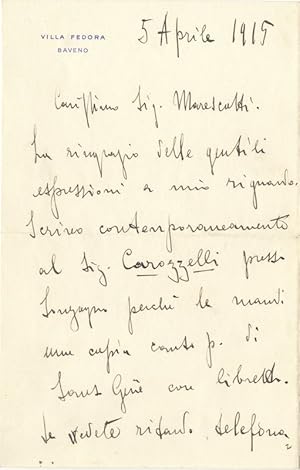 VILLA FEDORA
BAVENO
5 Aprile 1915
Carissimo Sig. Marescotti.
La ringrazio delle gentili
espressioni a mio riguardo.
Scrivo contemporaneamente
al Sig. Carozzelli presso
Sonzogno perché le mandi
una copia canto p. di
Sans Gêne con libretto.
Se vedete ritardo, telefona=